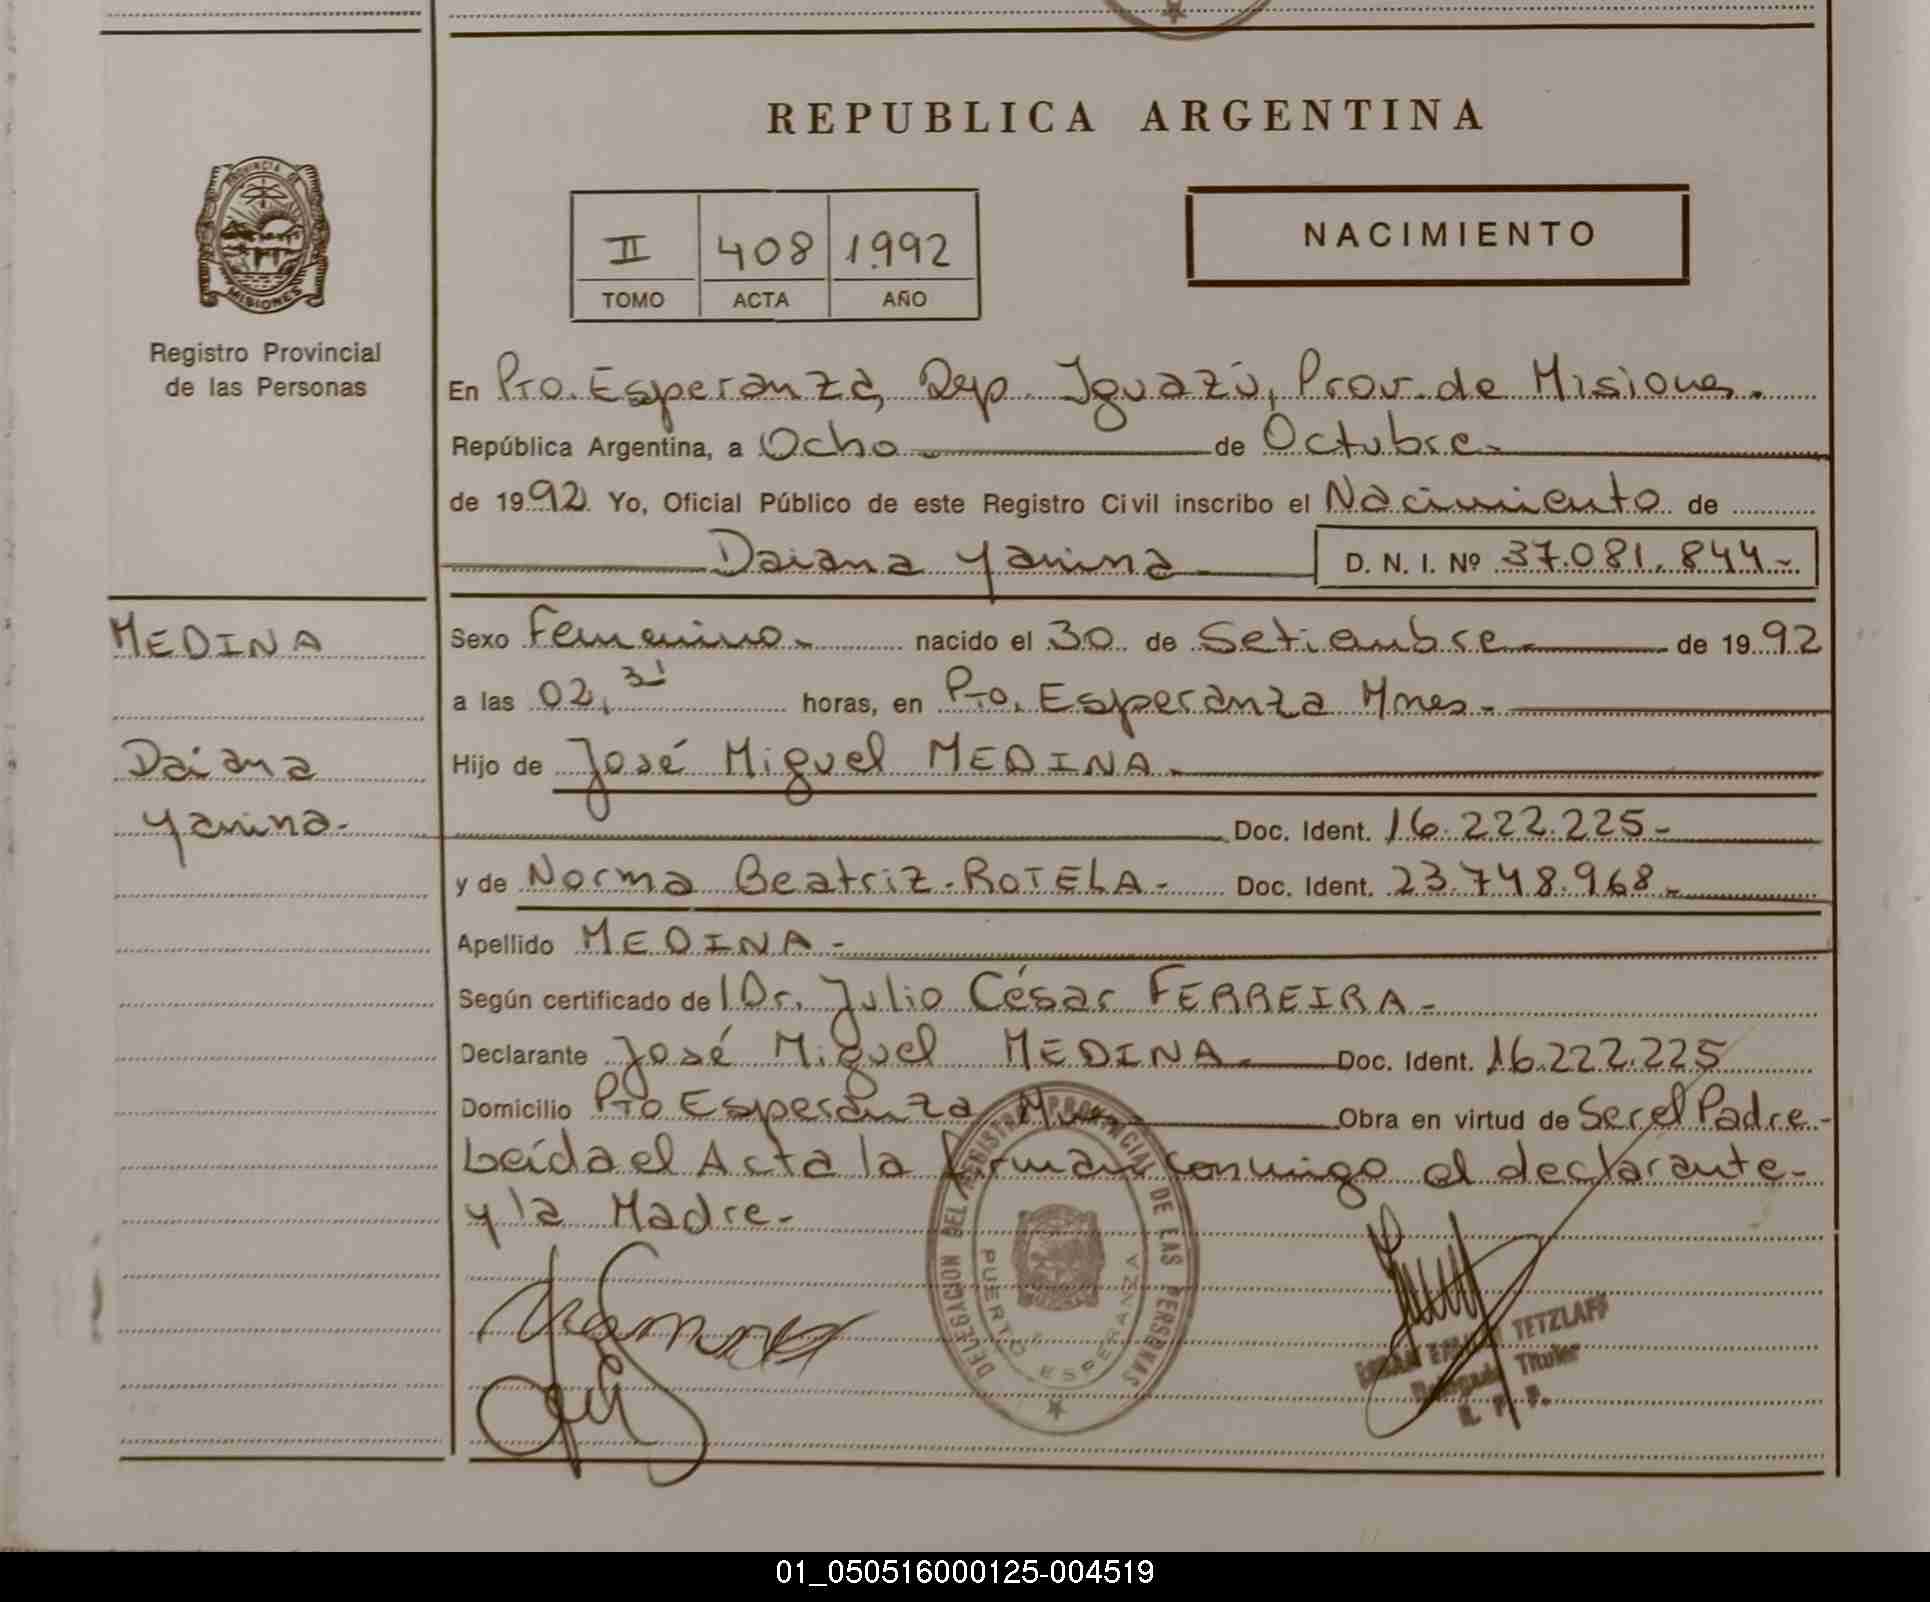 REPUBLICA ARGENTINA
PROVINCIA DE
MISIONES
Registro Provincial
de las Personas
II 408 1.992
TOMO ACTA AÑO
NACIMIENTO
En Pto. Esperanza, Dep. Iguazú, Prov. de Misiones.
República Argentina, a Ocho de Octubre
de 1992 Yo, Oficial Público de este Registro Civil inscribo el Nacimiento de
Daiana Yanina D. N. I. Nº 37.081.844-
MEDINA
Daiana
Yanina-
Sexo Femenino- nacido el 30 de Setiembre de 1992
a las 02, horas, en Pto. Esperanza Mnes-
Hijo de José Miguel MEDINA
Doc. Ident. 16.222.225-
y de Norma Beatriz ROTELA- Doc. Ident. 23.748.968-
Apellido MEDINA-
Según certificado de Dr. Julio César FERREIRA-
Declarante José Miguel MEDINA- Doc. Ident. 16.222.225
Domicilio Pto Esperanza Obra en virtud de Ser el Padre-
Leída el Acta la firman conmigo el declarante-
y la Madre-
DELEGACION DEL REGISTRO PROVINCIAL DE LAS PERSONAS
PUERTO ESPERANZA
TETZLAFF
Delegado Titular
R. P. P.
01_050516000125-004519